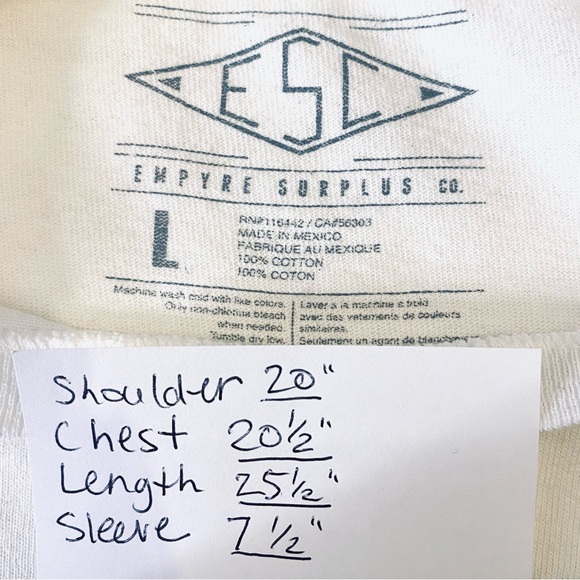 ESC
EMPYRE SURPLUS CO.
L
RN#116442 / CA#56303
MADE IN MEXICO
FABRIQUE AU MEXIQUE
100% COTTON
100% COTON
Machine wash cold with like colors.
Only non-chlorine bleach
when needed.
Tumble dry low.
Laver à la machine à froid
avec des vetements de couleurs
similaires.
Seulement un agent de
Shoulder 20"
Chest 20½"
Length 25½"
Sleeve 7½"